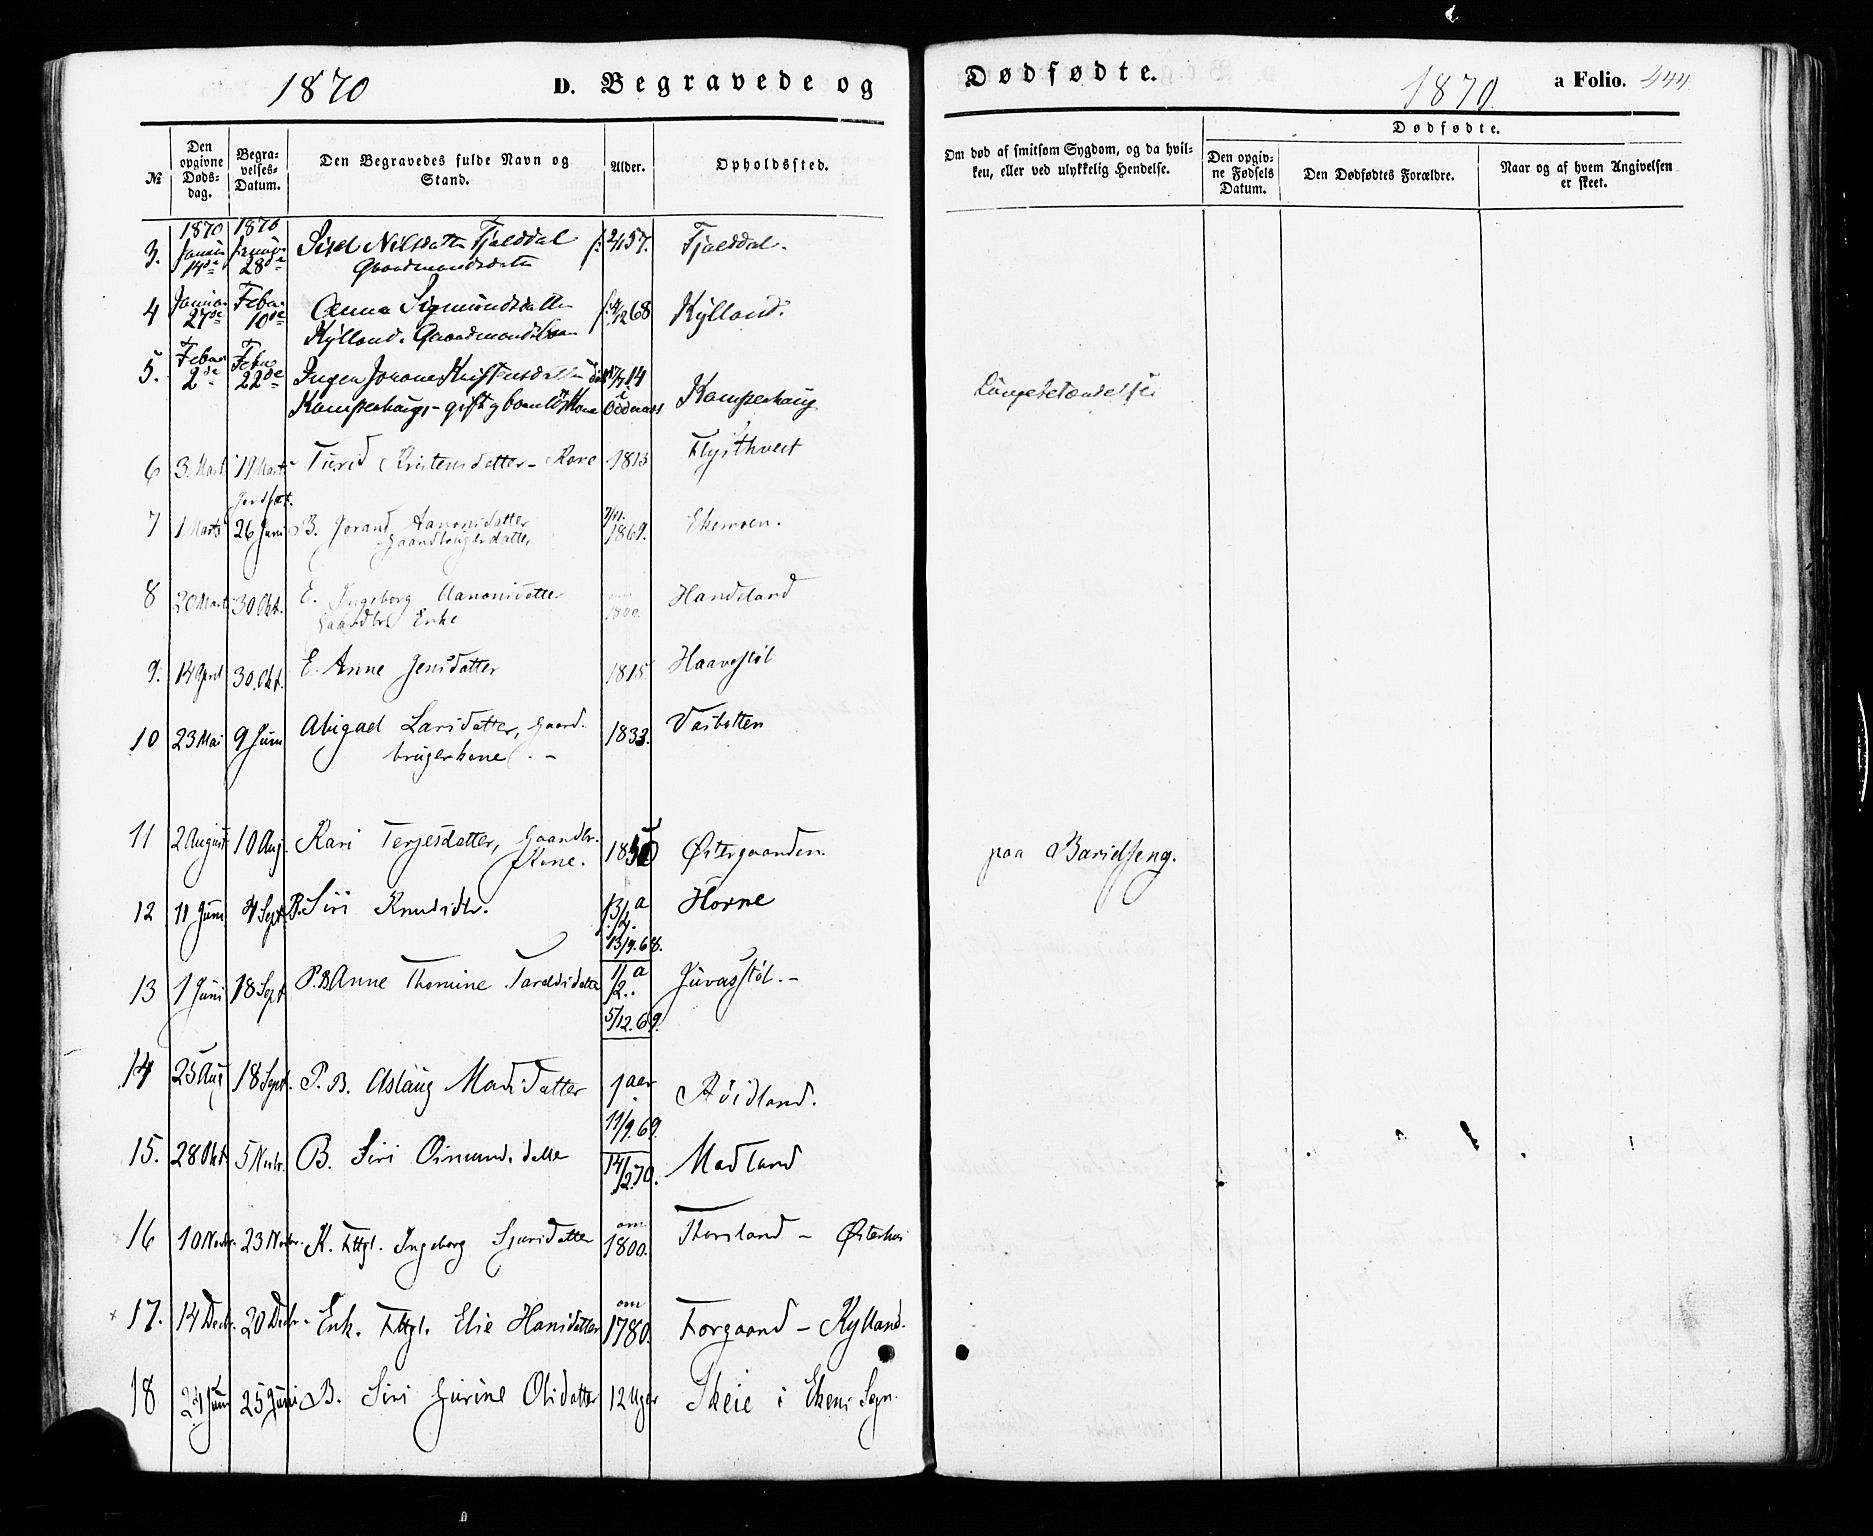 1870
D. Begravede og
Dødfødte.
1870
a Folio. 444
№
Den opgivne Døds-dag.
Begra-velses-Datum.
Den Begravedes fulde Navn og Stand.
Alder.
Opholdssted.
Om død af smitsom Sygdom, og da hvil-
ken, eller ved ulykkelig Hendelse.
Dødfødte.
Den opgiv-ne Fødsels Datum.
Den Dødfødtes Forældre.
Naar og af hvem Angivelsen er skeet.
1870 1870
3. Januar 14de Januar 28de Sisel Nilsdatter Fjalddal f. 57. Fjalddal.
Gaardmandsdatter
4 Januar 27de Febr. 10de Anna Sigmundsdatter f. 68 Kylland.
Kylland. Gaardmandsbarn
5. Febr. 2de Febr. 22de Inger Jorane Kristensdatter 14 Kamperhaug Lungebetændelse
Kamperhaug - gift og barnløs Kone
6 3. Mart 19 Marts Turid Kristensdatter - Kone 1813 Flysthveit
Jordfæt.
7 1 Marts 26 Juni B. Jorand Aanonsdatter 7/11. 1869. Ekemoen.
Gaardbrugerdatter
8 20 Mart 30 Okt. E. Ingeborg Aanonsdatter om 1800. Handeland
Gaardbr. Enke
9. 14 April 30. Okt. E. Anne Jensdatter 1815. Haavestøl
10 23 Mai 9 Juni Abigael Larsdatter, Gaard- 1833. Vasbotten
brugerkone. -
11 2 August 10 Aug. Kari Terjesdatter, Gaardbr. Kone. Østergaarden. paa Barselseng.
12 11 Juni 4 Sept. P. Siri Knudsdtr. 13/9.68. Horne
13 1 Juni 18 Sept. P.B. Anne Thomine Taraldsdatter 1/2 a 5/12.69. Juvasstøl. -
14 25 Aug 18 Sept. P. B. Aslaug Madsdatter 1 aar 11/9.69. Røidland.
15. 28 Okt. 5 Novbr. B. Siri Osmundsdatter 14/2 70. Madland
16 10 Novbr. 23 Novbr. K. Fttgl. Ingeborg Sjursdatter om 1800. Thorsland - Østerhus
17. 14 Decbr. 20 Decbr. Enk. Fttgl. Elie Hansdatter om 1780. Forgaard - Kylland.
18 24 Juni 25 Juni B. Siri Gurine Olsdatter 12 Uger Skeie i Ekens Sogn.